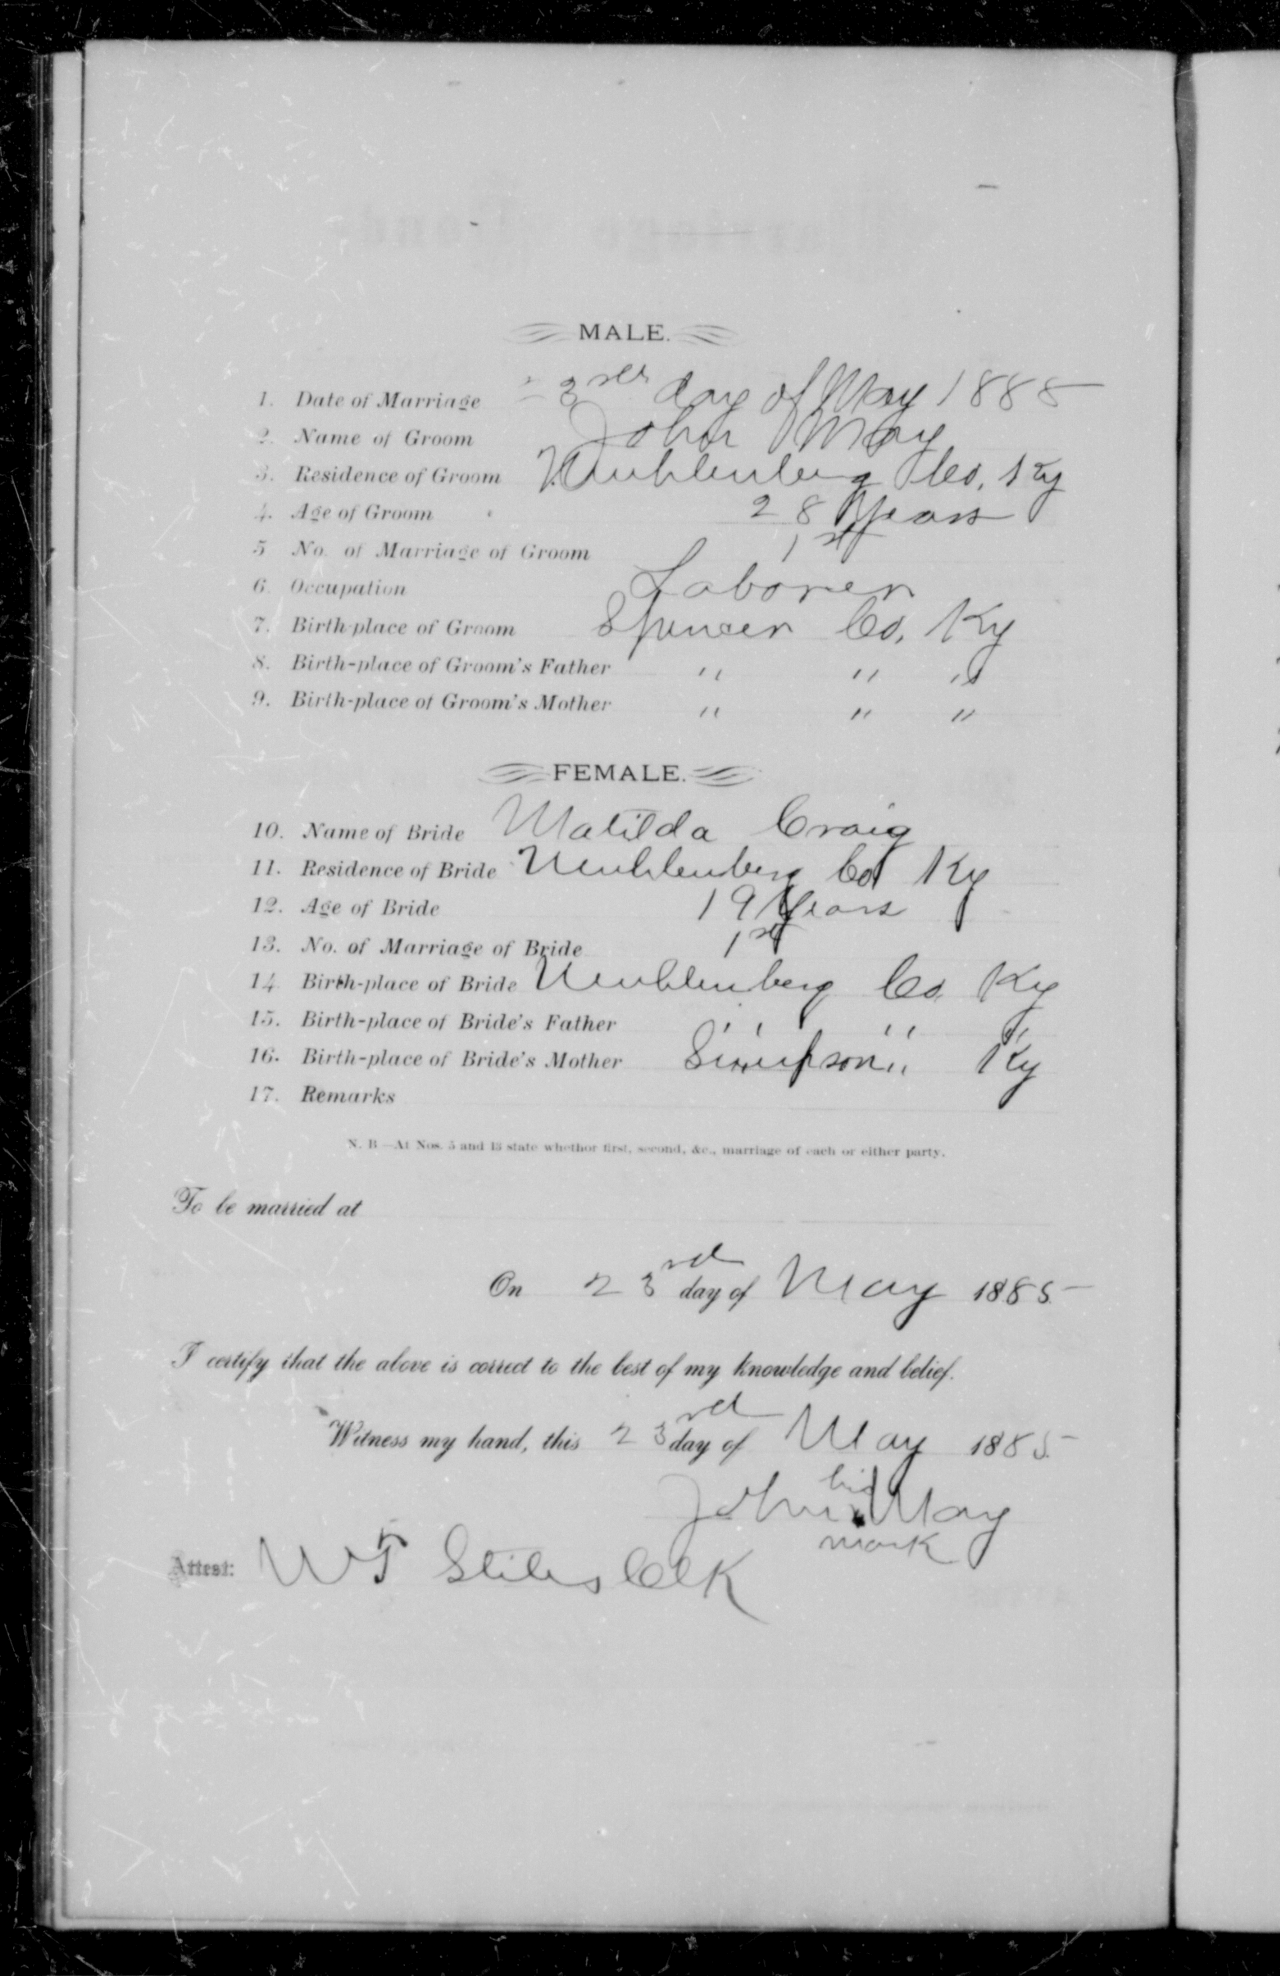 MALE.
1. Date of Marriage 23rd day of May 1885
2. Name of Groom John May
3. Residence of Groom Muhlenberg Co. Ky
4. Age of Groom 28 Years
5 No. of Marriage of Groom 1st
6. Occupation Laborer
7. Birth-place of Groom Spencer Co. Ky
8. Birth-place of Groom's Father " " "
9. Birth-place of Groom's Mother " " "
FEMALE.
10. Name of Bride Matilda Craig
11. Residence of Bride Muhlenberg Co Ky
12. Age of Bride 19 Years
13. No. of Marriage of Bride 1st
14 Birth-place of Bride Muhlenberg Co. Ky
15. Birth-place of Bride's Father " " "
16. Birth-place of Bride's Mother Simpson " Ky
17. Remarks
N. B—At Nos. 5 and 13 state whethor first, second, &c., marriage of each or either party.
To be married at
On 23rd day of May 1885
I certify that the above is correct to the best of my knowledge and belief.
Witness my hand, this 23rd day of May 1885
his
John x May
mark
Attest: W T Stiles Clk